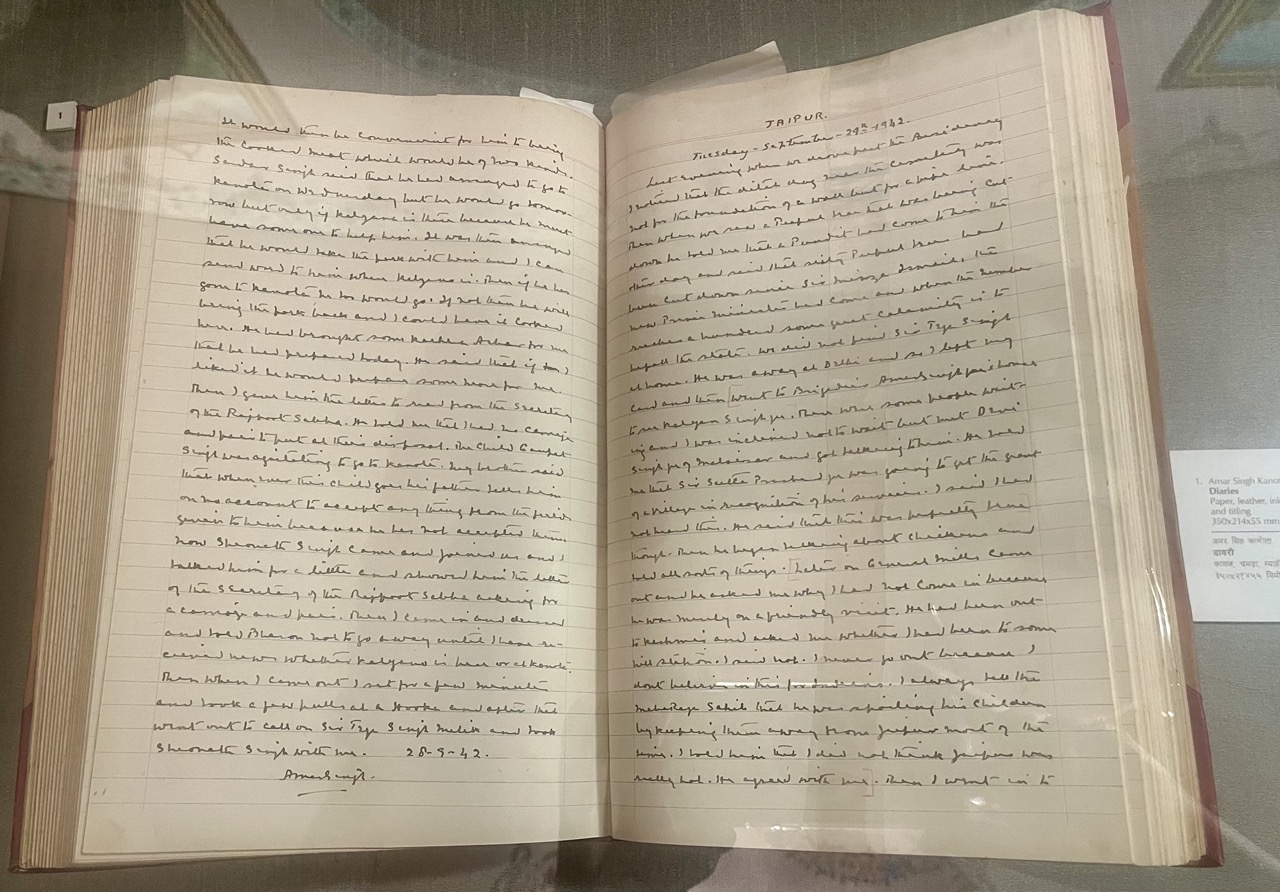 1
It would then be convenient for him to bring
the cooked meat which would be of two kinds.
Sardar Singh said that he had arranged to go to
Kanota on Wednesday but he would go tomor-
row but only if Kalyana is there because he must
have some one to help him. It was then arranged
that he would take the pork with him and I can
send word to him when Kalyana is. Then if he has
gone to Kanota he too would go. If not then he will
bring the pork back and I could have it cooked
here. He had brought some Achar for me
that he had prepared today. He said that if I
liked it he would prepare some more for me.
Then I gave him the letter to read from the Secretary
of the Rajpoot Sabha. He told me that I had no carriage
and pair to put at their disposal. The child Ganpat
Singh was agitating to go to Kanota. My brother said
that when ever this child goes his father tells him
on no account to accept any thing from the
given to him because he has not accepted them.
Now Sheonath Singh came and joined us and I
talked him for a little and showed him the letter
of the Secretary of the Rajpoot Sabha asking for
a carriage and pair. Then I came in and dressed
and told Bharon not to go away until I have re-
ceived news whether Kalyana is here or at Kanota.
Then when I came out I sat for a few minutes
and took a few pulls at a Hooka and after that
went out to call on Sir Teje Singh Malik and took
Sheonath Singh with me. 28-9-42.
Amar Singh.
JAIPUR.
Tuesday - September - 29th 1942.
Last evening when we drove past the Residency
I noticed that the ditch they near the was
not for the foundation of a wall but for a pipe line.
Then when we saw a Peepul tree that was being cut
down he told me that a Pundit had come to him the
other day and said that sixty Peepul trees had
been cut down since Sir Mirza Ismail, the
new Prime Minister had come and when the number
reaches a hundred some great calamity is to
befall the state. We did not find Sir Teje Singh
at home. He was away at Delhi and so I left my
card and then went to Brigadier Amar Singh jee's house
to see Kalyan Singh jee. There were some people wait-
ing and I was inclined not to wait but met Devi
Singh jee of Melaisar and got talking to him. He told
me that Sir Seetla Prashad jee was going to get the grant
of a village in recognition of his services. I said I had
not heard this. He said that this was perfectly true
though. Then he began talking about chickens and
told all sorts of things. [Later on General Mills came
out and he asked me why I had not come in because
he was merely on a friendly visit. He had been out
to Kashmir and asked me whether I had been to some
hill station. I said not. I never go out because I
dont believe in this for Indians. I always tell the
MahaRaja Sahib that he was spoiling his children
by keeping them away from Jaipur most of the
time. I told him that I did not think Jaipur was
really hot. He agreed with me]. Then I went in to
1. Amar Singh Kanot
Diaries
Paper, leather, ink
and titling
350x214x55 mm
अमर सिंह कानोता
डायरी
कागज, चमड़ा, स्याही
३५०x२१४x५५ मिमी